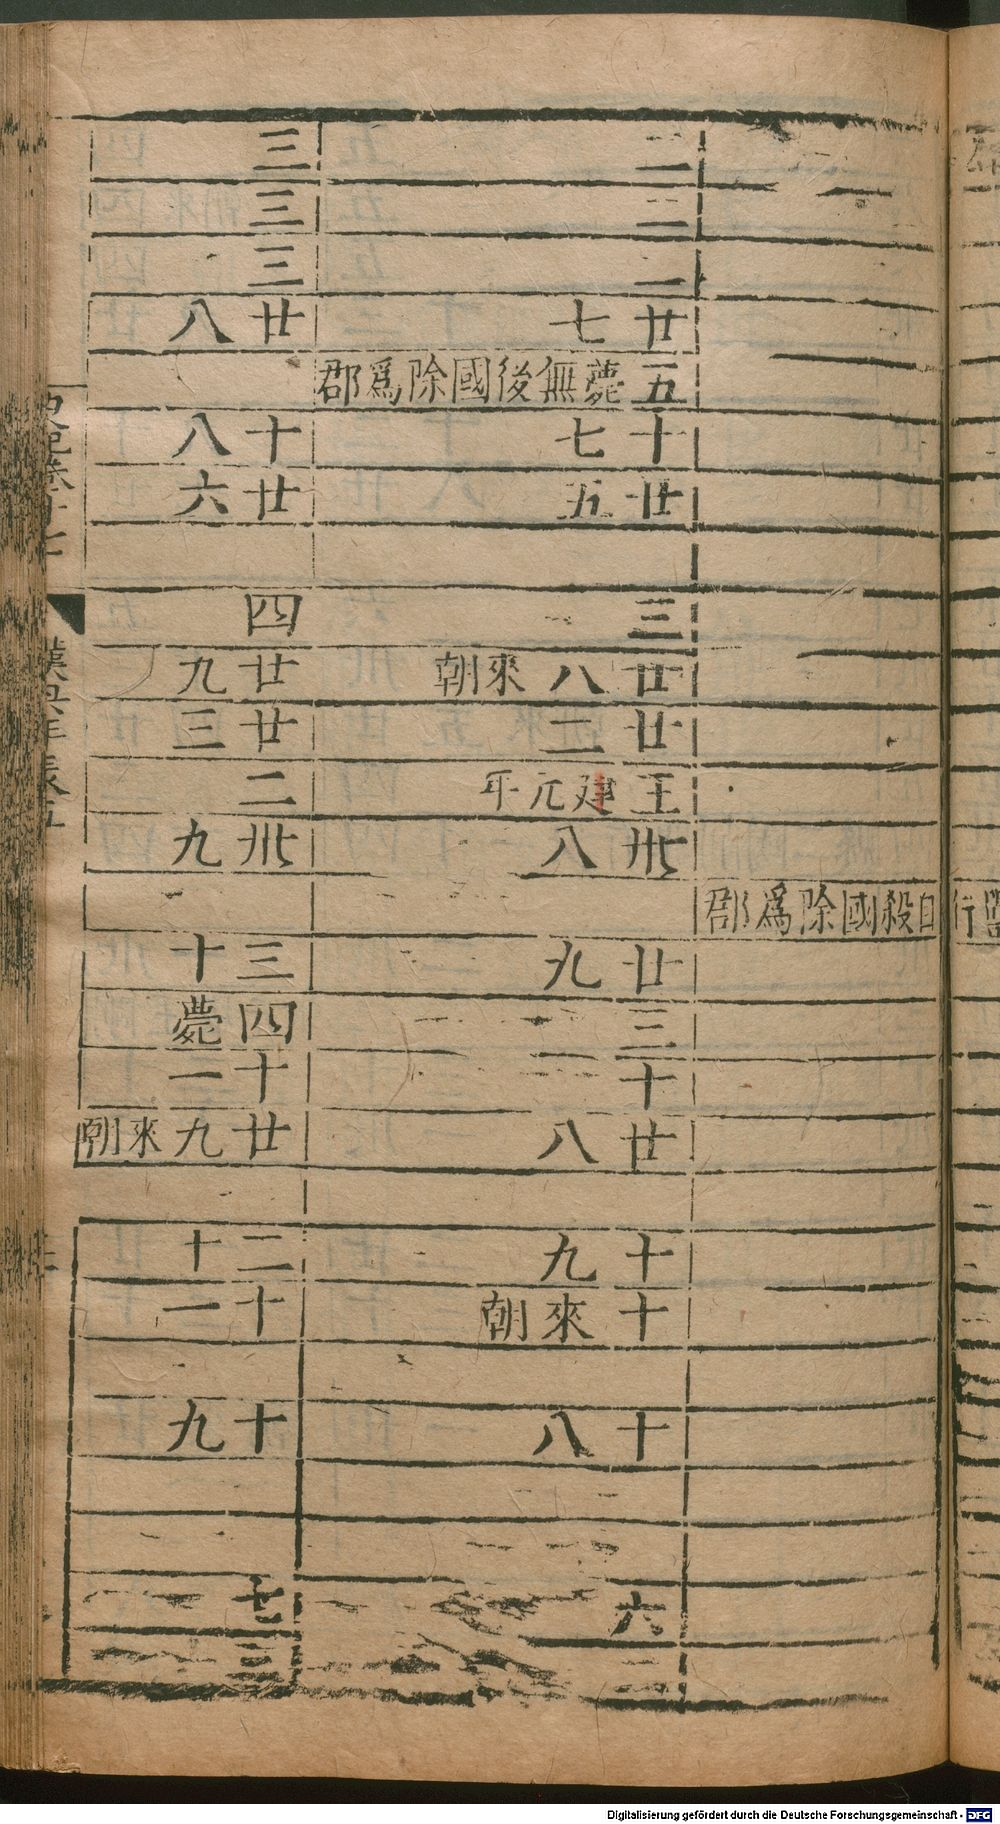 自殺國除爲郡
二
二
廿七
五薨無後國除爲郡
十七
廿五
三
廿八來朝
廿二
王建元年
卅八
廿九
三
十
廿八
十九
十來朝
十八
六
三
三
三
廿八
十八
廿六
四
廿九
廿三
二
卅九
三十
四薨
十一
廿九來朝
二十
十一
十九
七
三
史記卷十七
漢興年表五
Digitalisierung gefördert durch die Deutsche Forschungsgemeinschaft - DFG